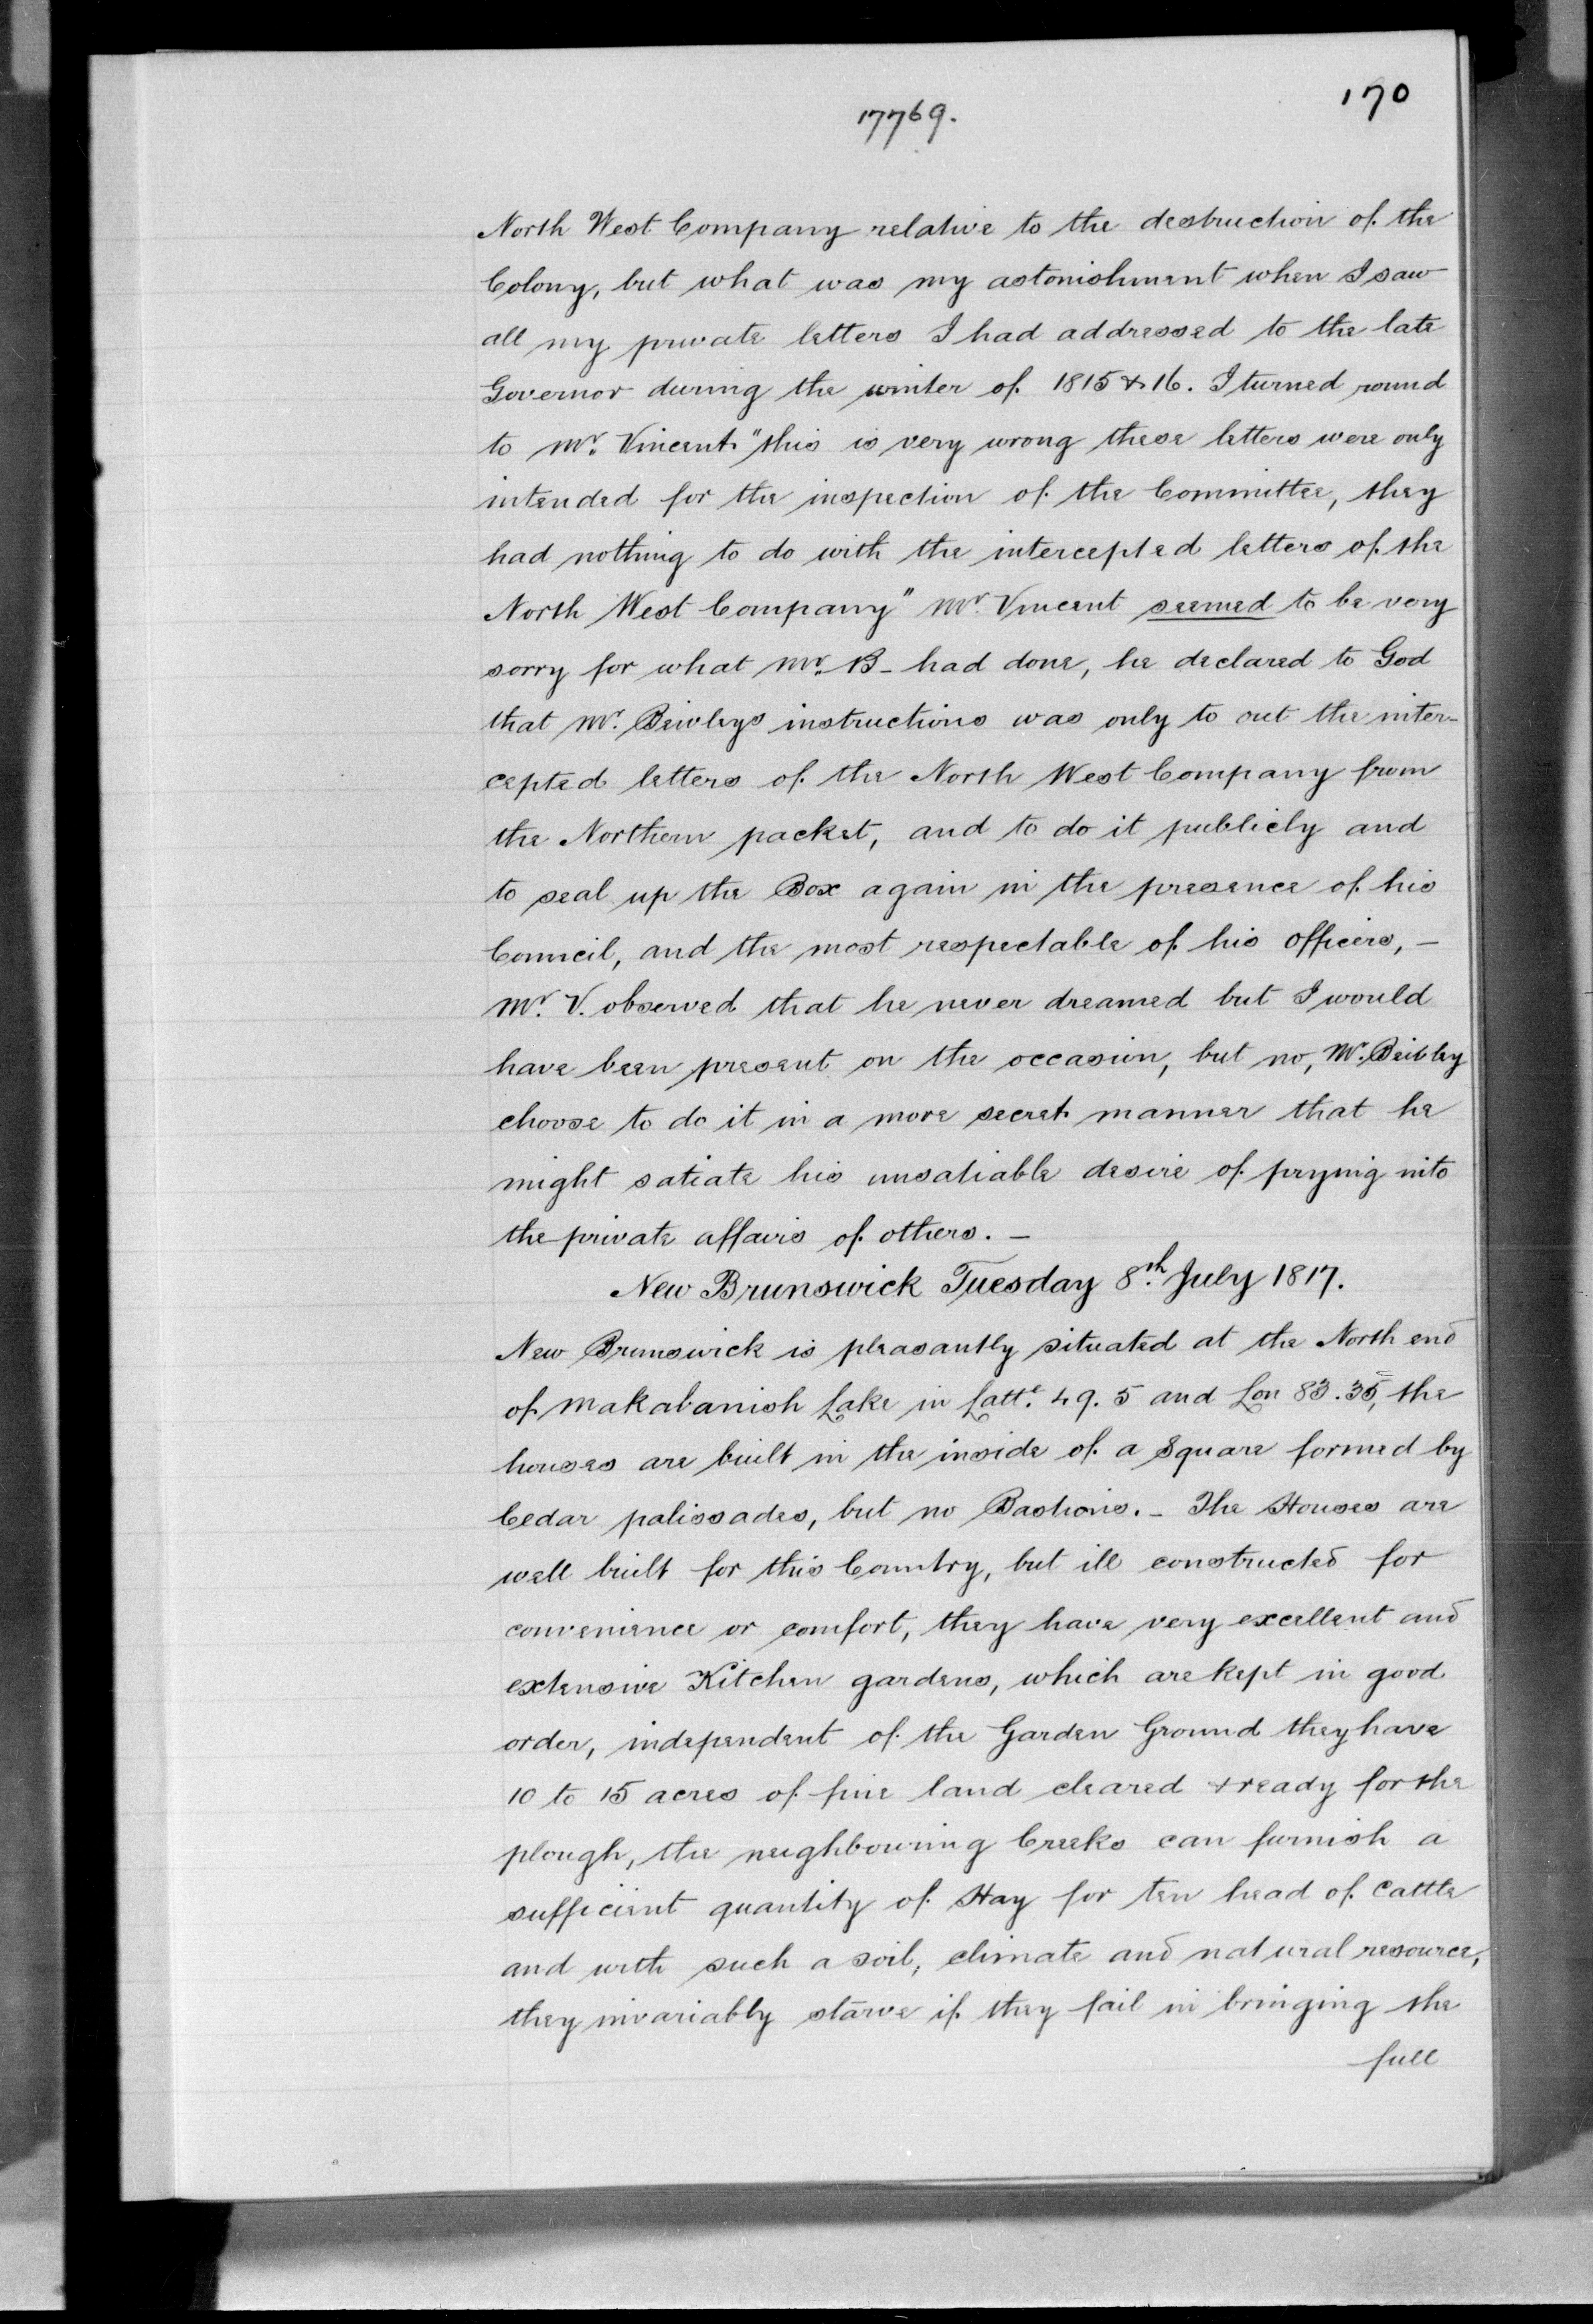 170
17769.
North West Company relative to the destruction of the
Colony, but what was my astonishment when I saw
all my private letters I had addressed to the late
Governor during the winter of 1815 & 16. I turned round
to Mr. Vincent "this is very wrong these letters were only
intended for the inspection of the Committee, they
had nothing to do with the intercepted letters of the
North West Company" Mr. Vincent seemed to be very
sorry for what Mr. B- had done, he declared to God
that Mr. Beivleys instructions was only to out the inter-
cepted letters of the North West Company from
the Northern packet, and to do it publicly and
to seal up the Box again in the presence of his
Council, and the most respectable of his officers, -
Mr. V. observed that he never dreamed but I would
have been present on the occasion, but no, Mr. Beibley
choose to do it in a more secret manner that he
might satiate his unsatiable desire of prying into
the private affairs of others. -
New Brunswick Tuesday 8th July 1817.
New Brunswick is pleasantly situated at the North end
of Makabanish Lake in Latte. 49. 5 and Lon 83. 35, the
houses are built in the inside of a Square formed by
Cedar palissades, but no Bastions. - The Houses are
well built for this Country, but ill constructed for
convenience or comfort, they have very excellent and
extensive Kitchen gardens, which are kept in good
order, independent of the Garden Ground they have
10 to 15 acres of fine land cleared & ready for the
plough, the neighbouring Creeks can furnish a
sufficient quantity of Hay for ten head of Cattle
and with such a soil, climate and natural resource,
they invariably starve if they fail in bringing the
full